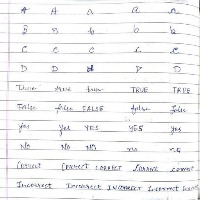 A A a a a
B B b b b
C C C c c
D D d D D
True true true TRUE TRUE
False false FALSE false false
yes yes YES YES yes
No No NO no no
Correct CORRECT CORRECT Correct correct
Incorrect Incorrect INCORRECT Incorrect